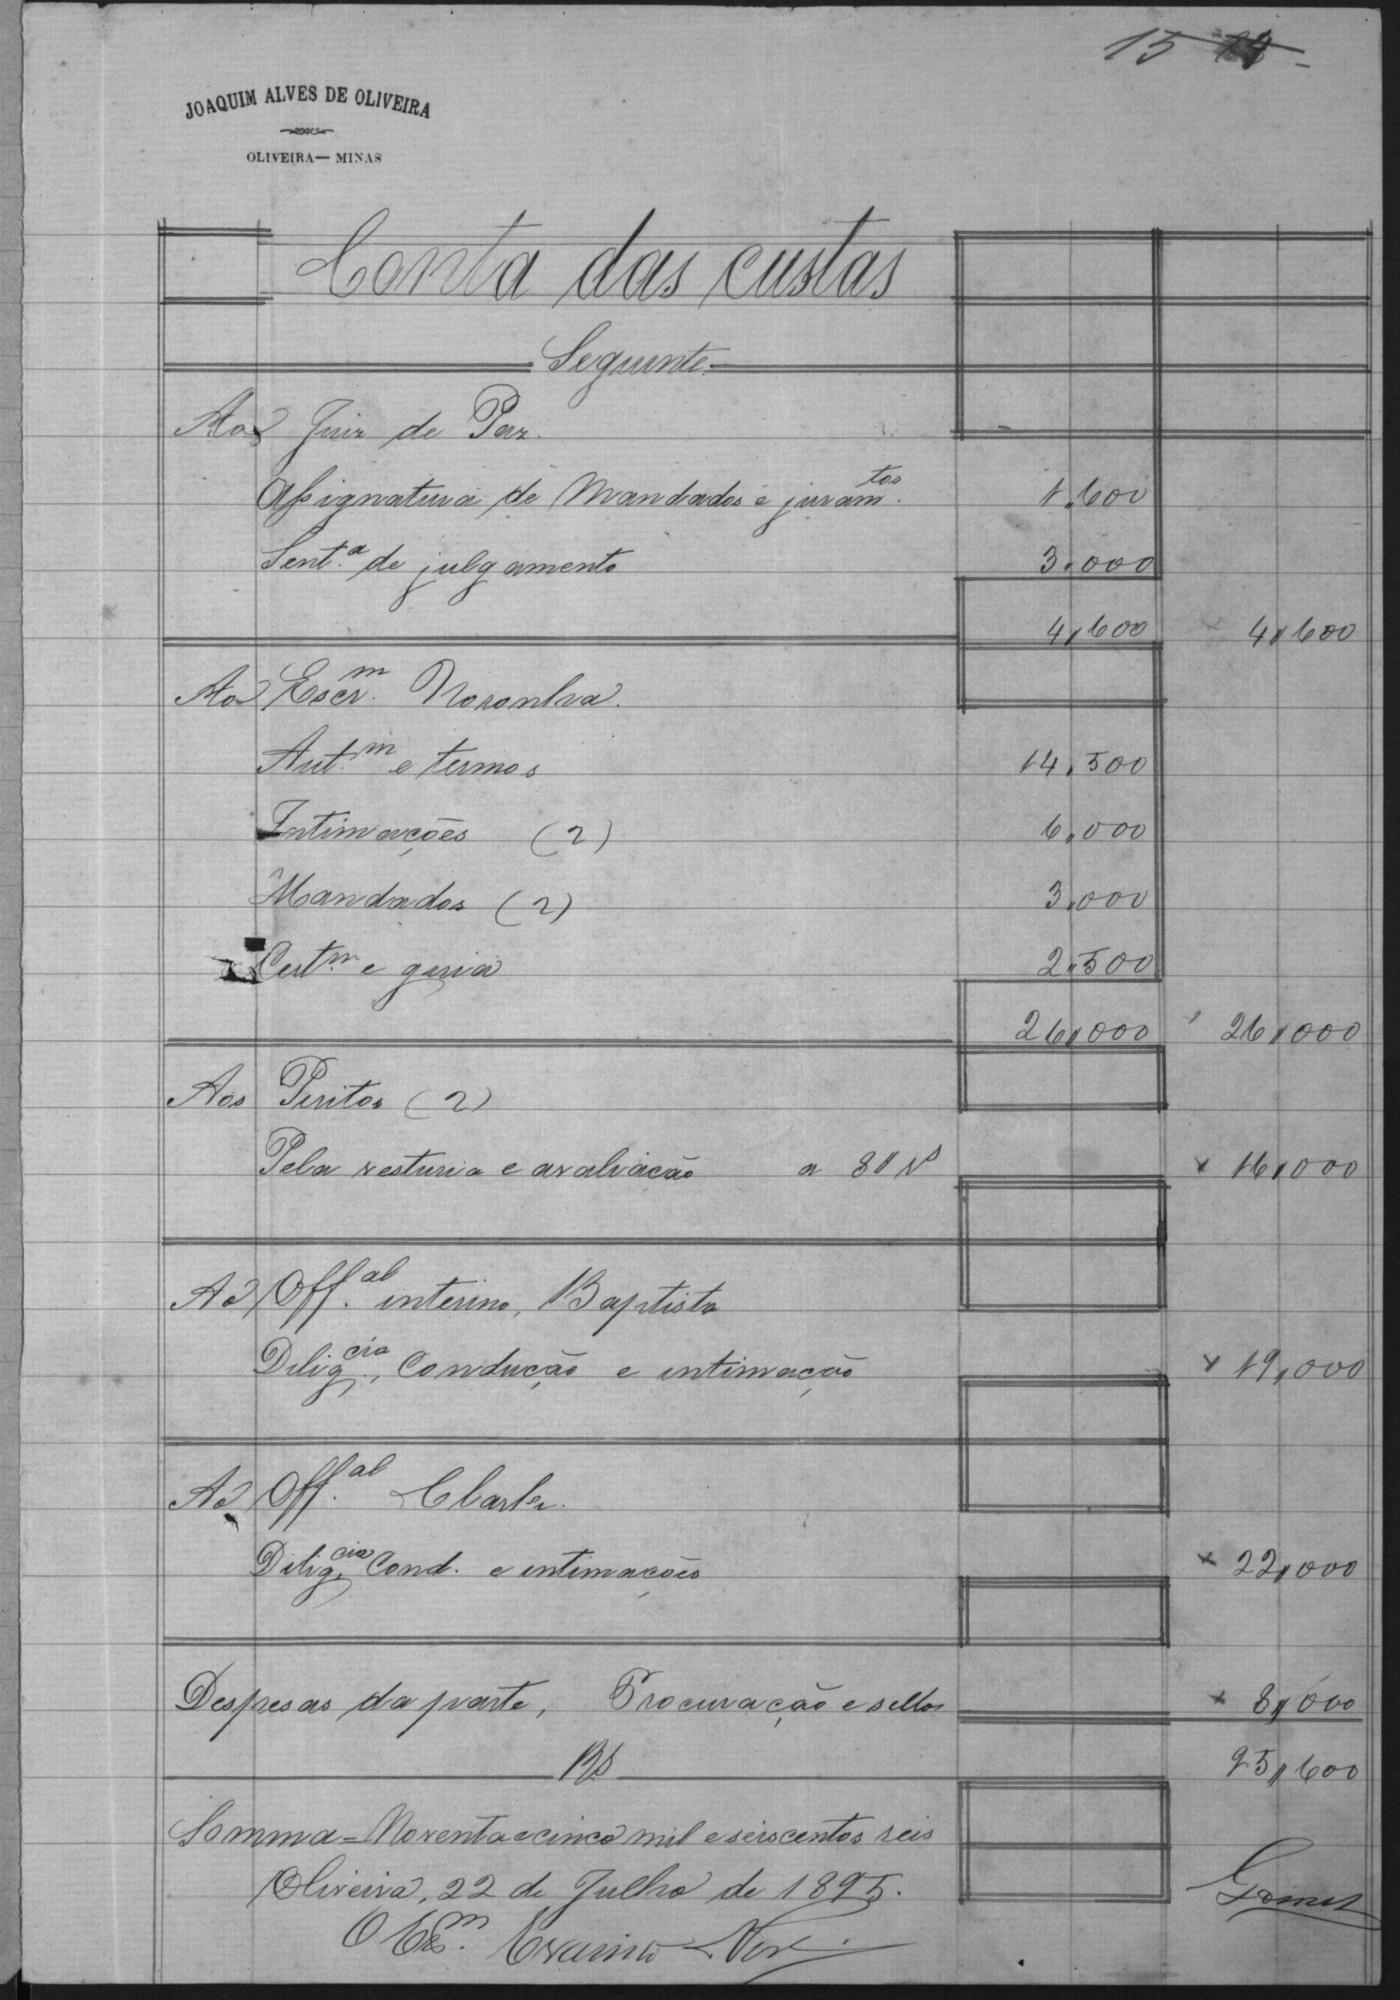 15
JOAQUIM ALVES DE OLIVEIRA
OLIVEIRA — MINAS
Conta das custas
Seguinte
Ao Juiz de Paz.
Assignatura de Mandados e juramtos. 1.600
Sent.a de julgamento 3.000
4,600 4,600
Ao Escr.m Noronha.
Aut.m e termos 14.500
Intimações (2) 6.000
Mandados (2) 3.000
Cert.m e guia 2.500
26,000 26,000
Aos Peritos (2)
Pela vesturia e avaliação a 8 16,000
Ao Off.al interino, Baptista
Dilig.cia, Condução e intimação 19,000
Ao Off.al
Dilig.cia Cond. e intimações 22,000
Despesas da parte, Procuração e sellos 8,000
Rs 95,600
Somma = Noventa e cinco mil e seiscentos reis
Oliveira, 22 de Julho de 1895.
O Es.m
Gomes